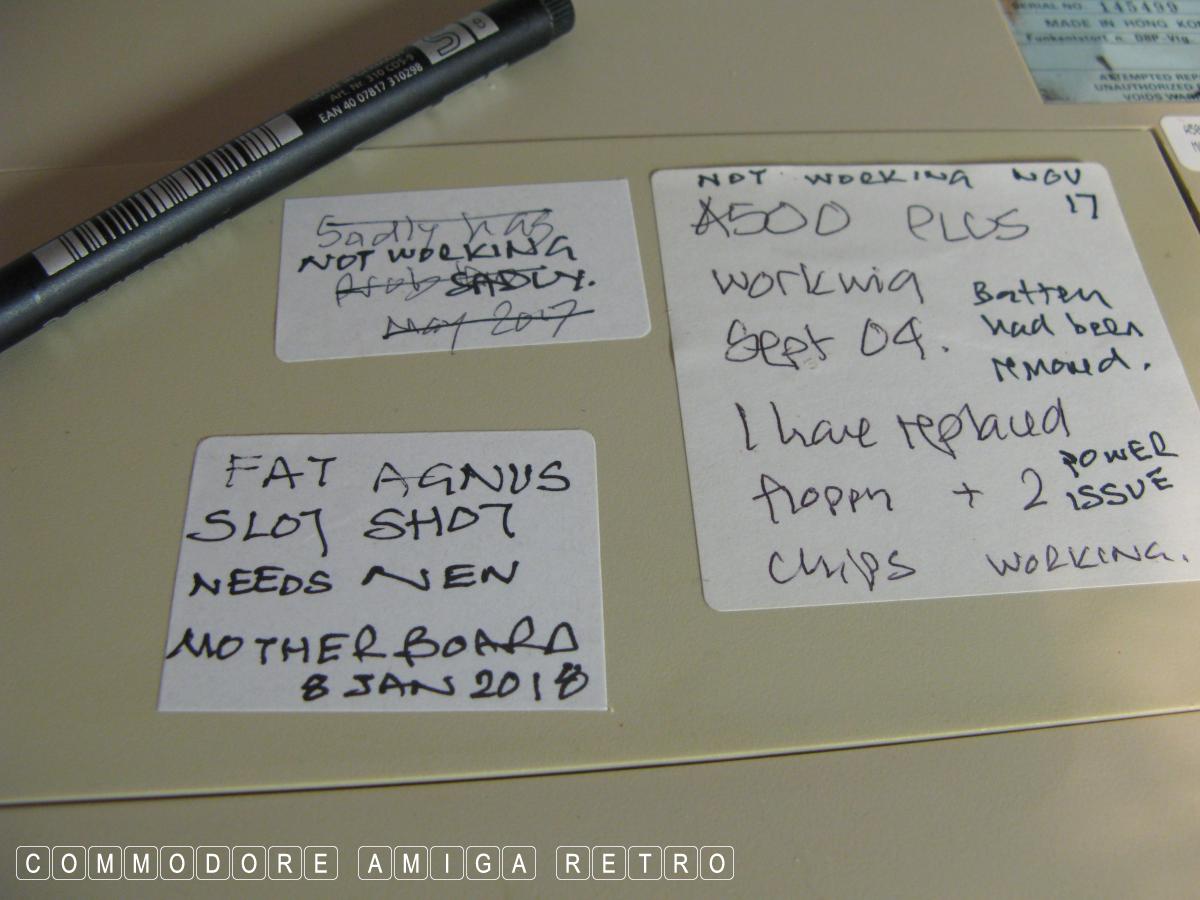 Art. Nr. 310 CDS-9
EAN 40 07817 310298
S
SERIAL NO. 145499
MADE IN HONG KON
Funkentstört n. DBP-Vfg
ATTEMPTED REP
UNAUTHORIZED
VOIDS WAR
Sadly has
NOT WORKING
SADLY.
May 2017
NOT WORKING NOV
17
A500 PLUS
working
Sept 04.
Battery
had been
removed.
I have replaced
floppy + 2
POWER
ISSUE
chips WORKING.
FAT AGNUS
SLOT SHOT
NEEDS NEW
MOTHERBOARD
8 JAN 2018
COMMODORE AMIGA RETRO